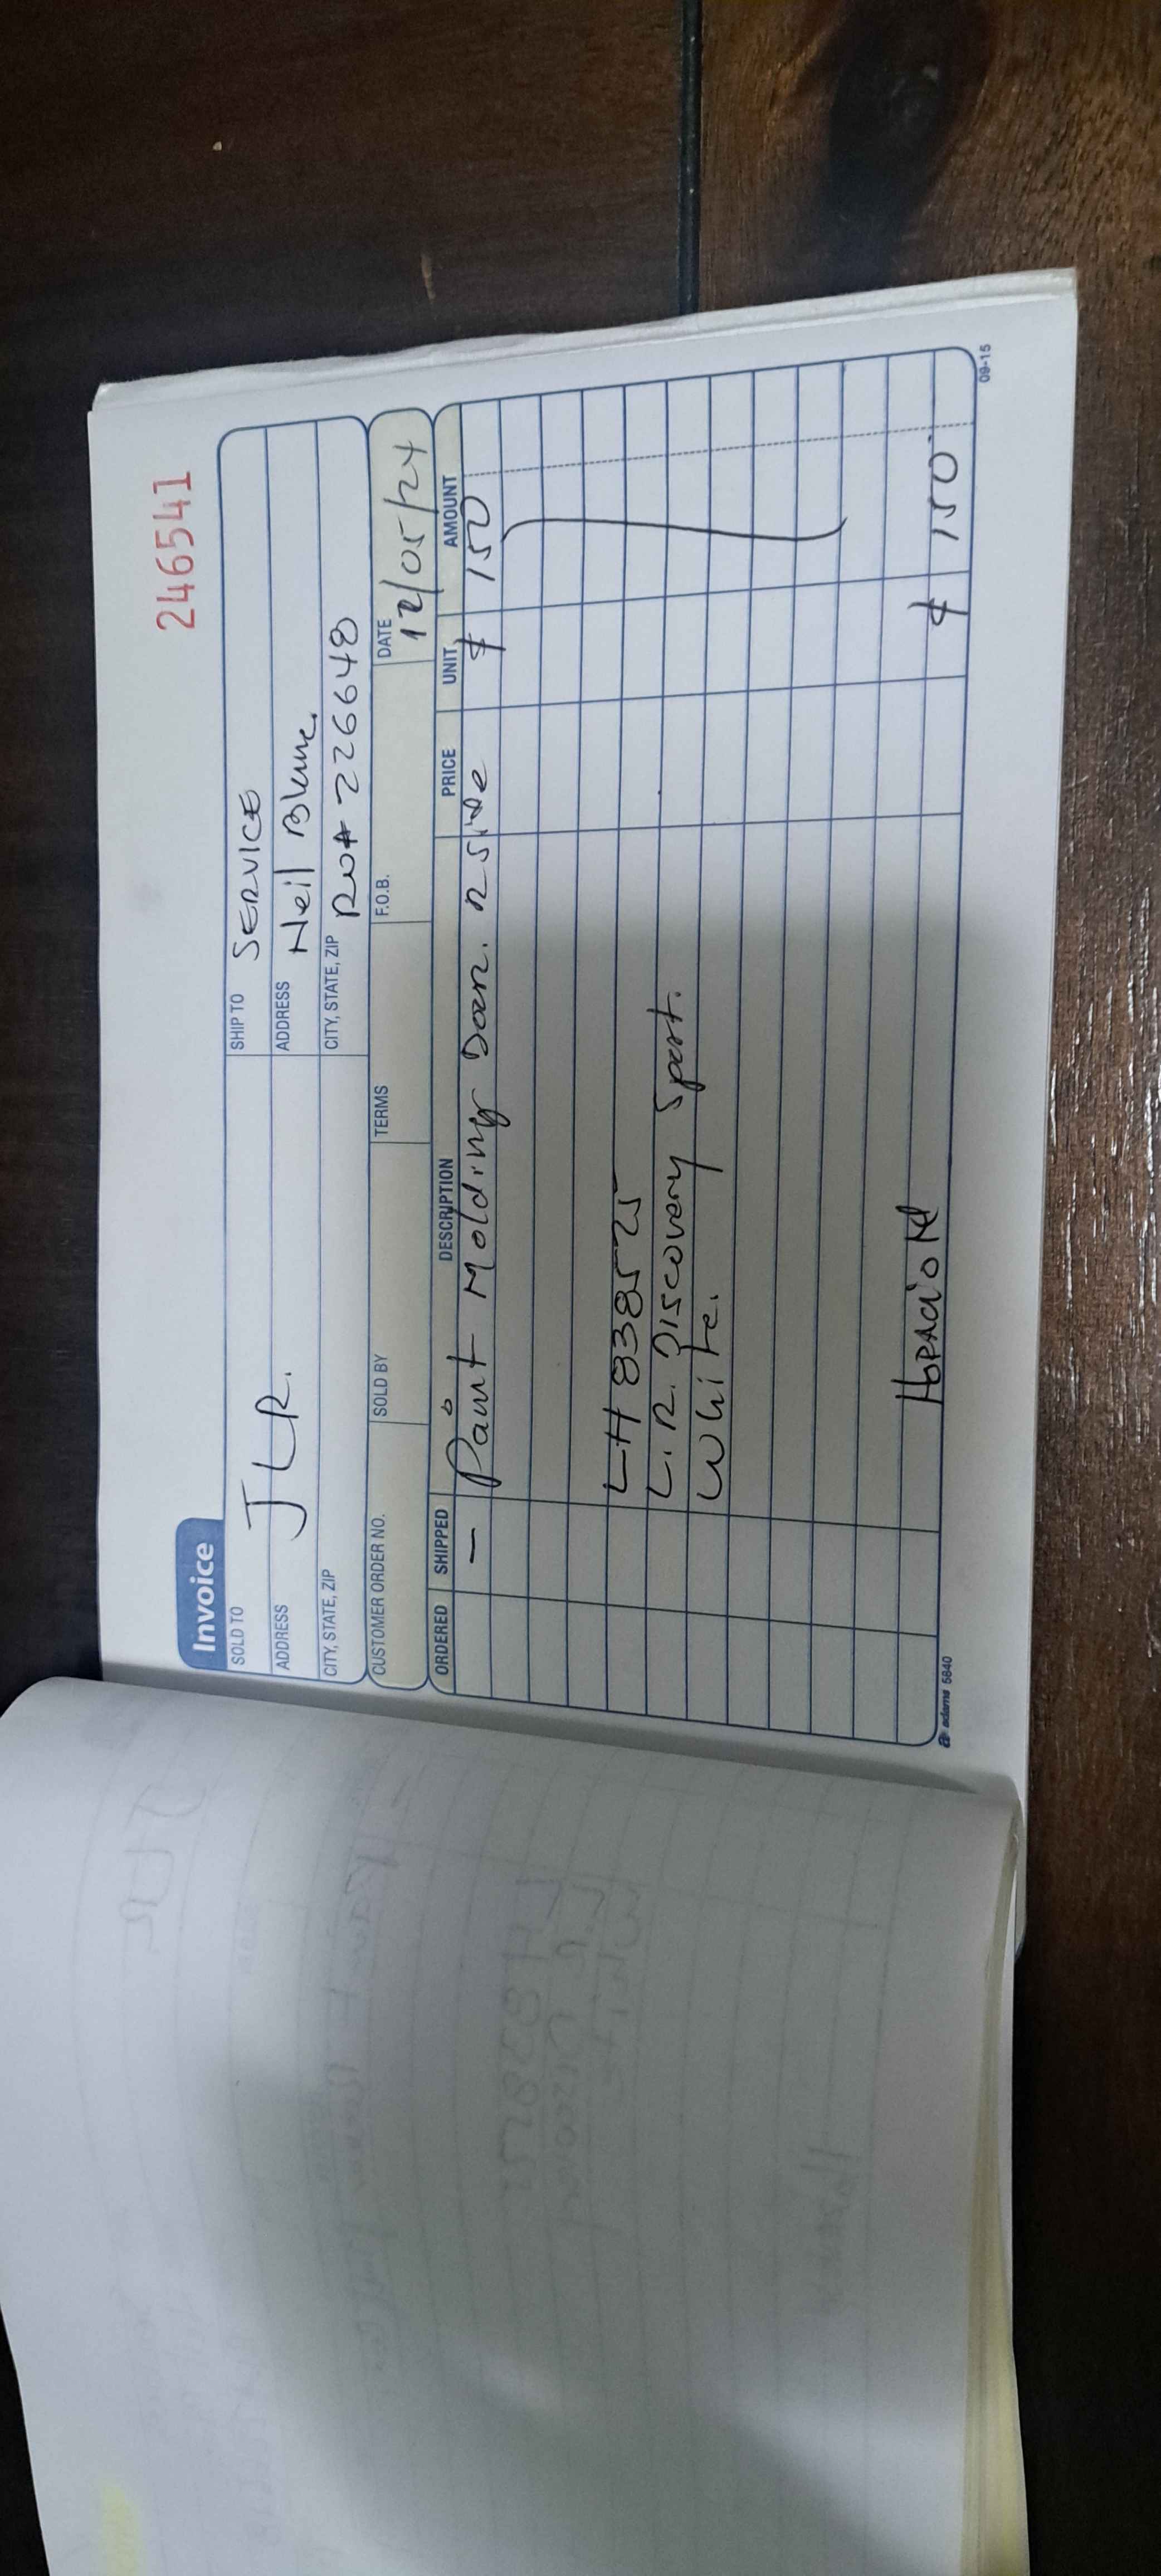 246541
Invoice
SOLD TO JLR.
SHIP TO SERVICE
ADDRESS
ADDRESS Neil
CITY, STATE, ZIP
CITY, STATE, ZIP RO# 226648
CUSTOMER ORDER NO. SOLD BY TERMS F.O.B. DATE 12/05/24
ORDERED SHIPPED DESCRIPTION PRICE UNIT AMOUNT
— Paint Molding Door. R side $ 150
LH 838525
L.R. Discovery Sport.
White.
Horacio M $ 150
adams 5840
09-15